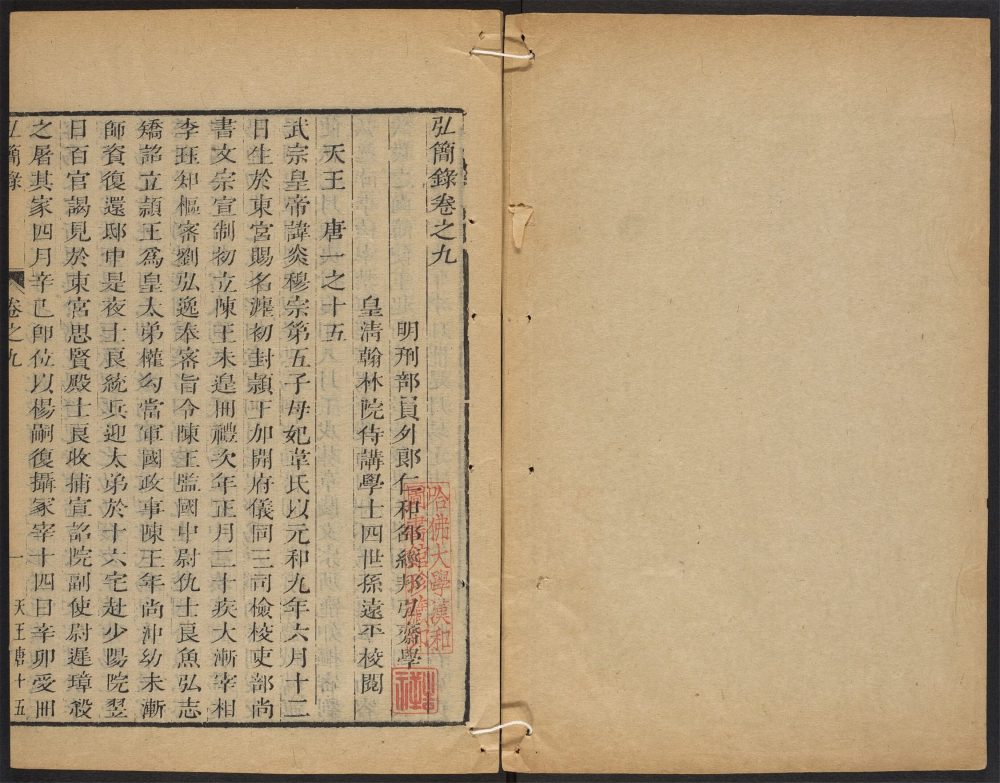 弘簡錄卷之九
明刑部員外郎仁和邵經邦弘齋學
皇清翰林院侍講學士四世孫遠平校閱
天王 唐一之十五
武宗皇帝諱炎穆宗第五子母妃韋氏以元和九年六月十二
日生於東宮賜名瀍初封潁王加開府儀同三司檢校吏部尚
書文宗宣制初立陳王未遑冊禮次年正月三十疾大漸宰相
李珏知樞密劉弘逸奉密旨令陳王監國中尉仇士良魚弘志
矯詔立潁王爲皇太弟權勾當軍國政事陳王年尚沖幼未漸
師資復還邸中是夜士良統兵迎太弟於十六宅赴少陽院翌
日百官謁見於東宮思賢殿士良收捕宣詔院副使尉遲璋殺
之屠其家四月辛巳即位以楊嗣復攝冢宰十四日辛卯受冊
弘簡錄 卷之九 一 天王唐十五
哈佛大學漢和
圖書館珍藏印